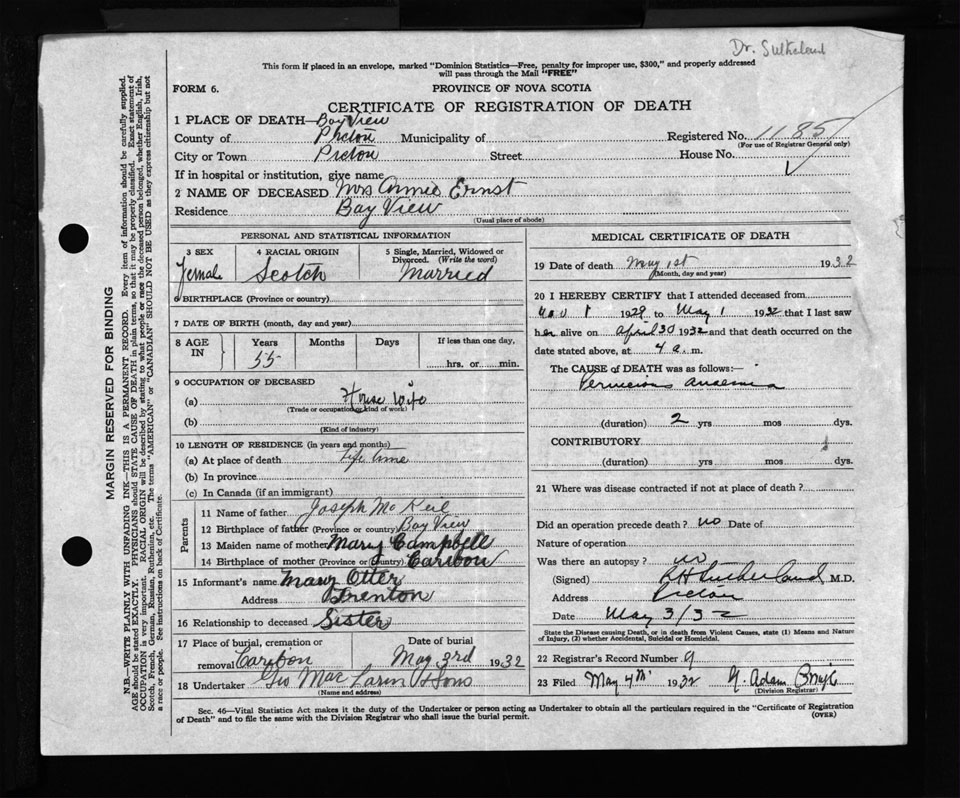 Dr. Sutherland
This form if placed in an envelope, marked "Dominion Statistics—Free, penalty for improper use, $300," and properly addressed
will pass through the Mail "FREE"
FORM 6.
PROVINCE OF NOVA SCOTIA
CERTIFICATE OF REGISTRATION OF DEATH
1 PLACE OF DEATH— Bay View
County of Pictou Municipality of Registered No. 1185
(For use of Registrar General only)
City or Town Pictou Street House No.
If in hospital or institution, give name
2 NAME OF DECEASED Mrs Annie Ernst
Residence Bay View
(Usual place of abode)
PERSONAL AND STATISTICAL INFORMATION
3 SEX 4 RACIAL ORIGIN 5 Single, Married, Widowed or
Divorced. (Write the word)
Female Scotch Married
6 BIRTHPLACE (Province or country)
7 DATE OF BIRTH (month, day and year)
8 AGE IN Years Months Days If less than one day,
55 hrs. or min.
9 OCCUPATION OF DECEASED
(a) House Wife
(Trade or occupation or kind of work)
(b)
(Kind of industry)
10 LENGTH OF RESIDENCE (in years and months)
(a) At place of death Life time
(b) In province
(c) In Canada (if an immigrant)
Parents
11 Name of father Joseph McKeil
12 Birthplace of father (Province or country) Bay View
13 Maiden name of mother Mary Campbell
14 Birthplace of mother (Province or country) Caribou
15 Informant's name Mary Otter
Address Trenton
16 Relationship to deceased Sister
17 Place of burial, cremation or Date of burial
removal Caribou May 3rd 1932
18 Undertaker Geo MacLaren & Sons
(Name and address)
MEDICAL CERTIFICATE OF DEATH
19 Date of death May 1st 1932
(Month, day and year)
20 I HEREBY CERTIFY that I attended deceased from
Nov 1 1929 to May 1 1932 that I last saw
her alive on April 30 1932 and that death occurred on
date stated above, at 4 a. m.
The CAUSE of DEATH was as follows:—
Pernicious anaemia
(duration) 2 yrs mos dys.
CONTRIBUTORY
(duration) yrs mos dys.
21 Where was disease contracted if not at place of death?
Did an operation precede death? no Date of
Nature of operation
Was there an autopsy? no
(Signed) Sutherland M.D.
Address Pictou
Date May 3/32
State the Disease causing Death, or in death from Violent Causes, state (1) Means and Nature
of Injury, (2) whether Accidental, Suicidal or Homicidal.
22 Registrar's Record Number 9
23 Filed May 4th 1932 Adam
(Division Registrar)
Sec. 46—Vital Statistics Act makes it the duty of the Undertaker or person acting as Undertaker to obtain all the particulars required in the "Certificate of Registration
of Death" and to file the same with the Division Registrar who shall issue the burial permit.
(OVER)
MARGIN RESERVED FOR BINDING
N.B.—WRITE PLAINLY WITH UNFADING INK—THIS IS A PERMANENT RECORD. Every item of information should be carefully supplied.
AGE should be stated EXACTLY. PHYSICIANS should STATE CAUSE OF DEATH in plain terms, so that it may be properly classified. Exact statement of
OCCUPATION is very important. RACIAL ORIGIN will be described by stating to what people or race the deceased person belonged, whether English, Irish,
Scotch, French, German, Russian, Ruthenian, etc. The terms "AMERICAN" or "CANADIAN" SHOULD NOT BE USED as they express citizenship but not
a race or people. See instructions on back of Certificate.